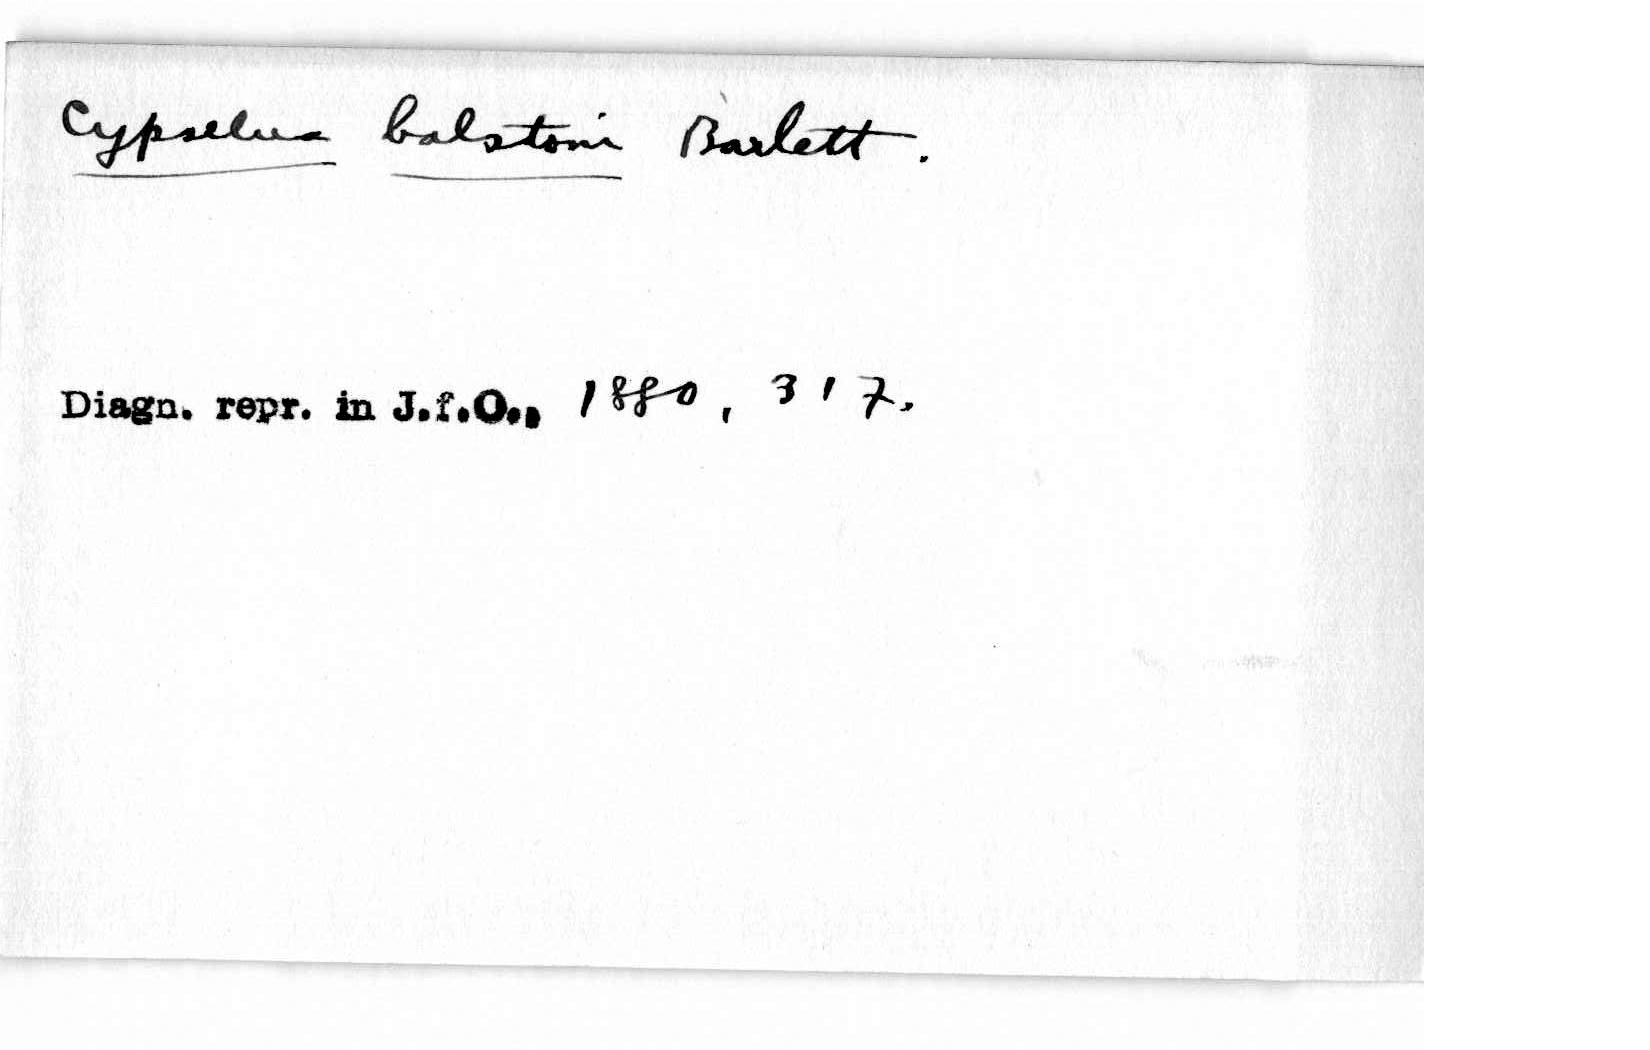 Cypselus balstoni Barlett.
Diagn. repr. in J.f.O., 1880, 317.